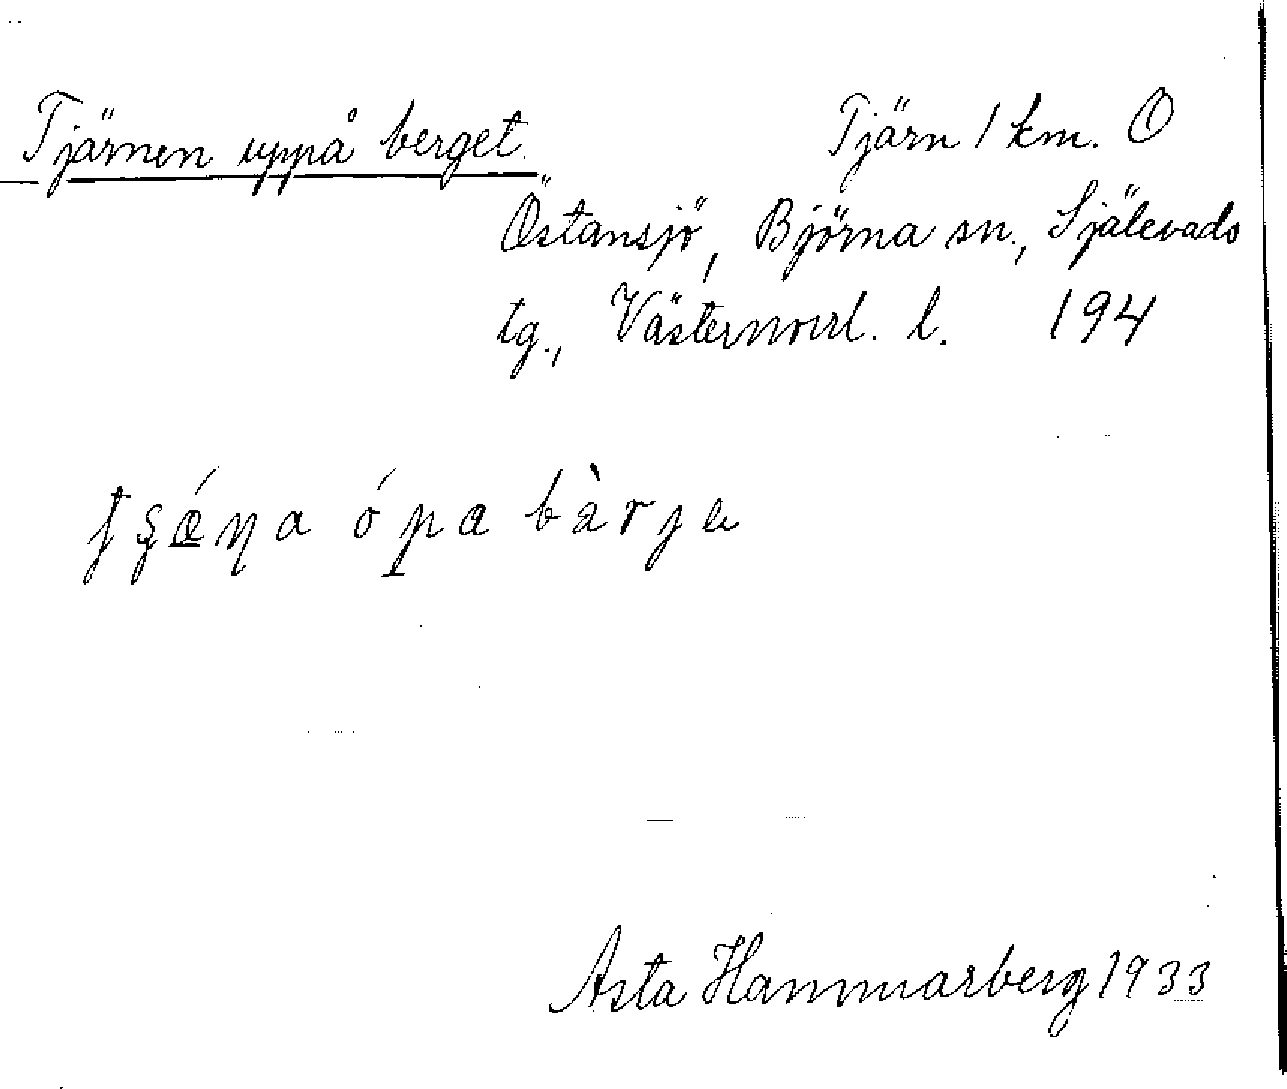 Tjärnen uppå berget. Tjärn 1 km. O
Östansjö, Björna sn., Själevads
tg., Västernorrl. l. 194
ópa bàrje
Asta Hammarberg 1933